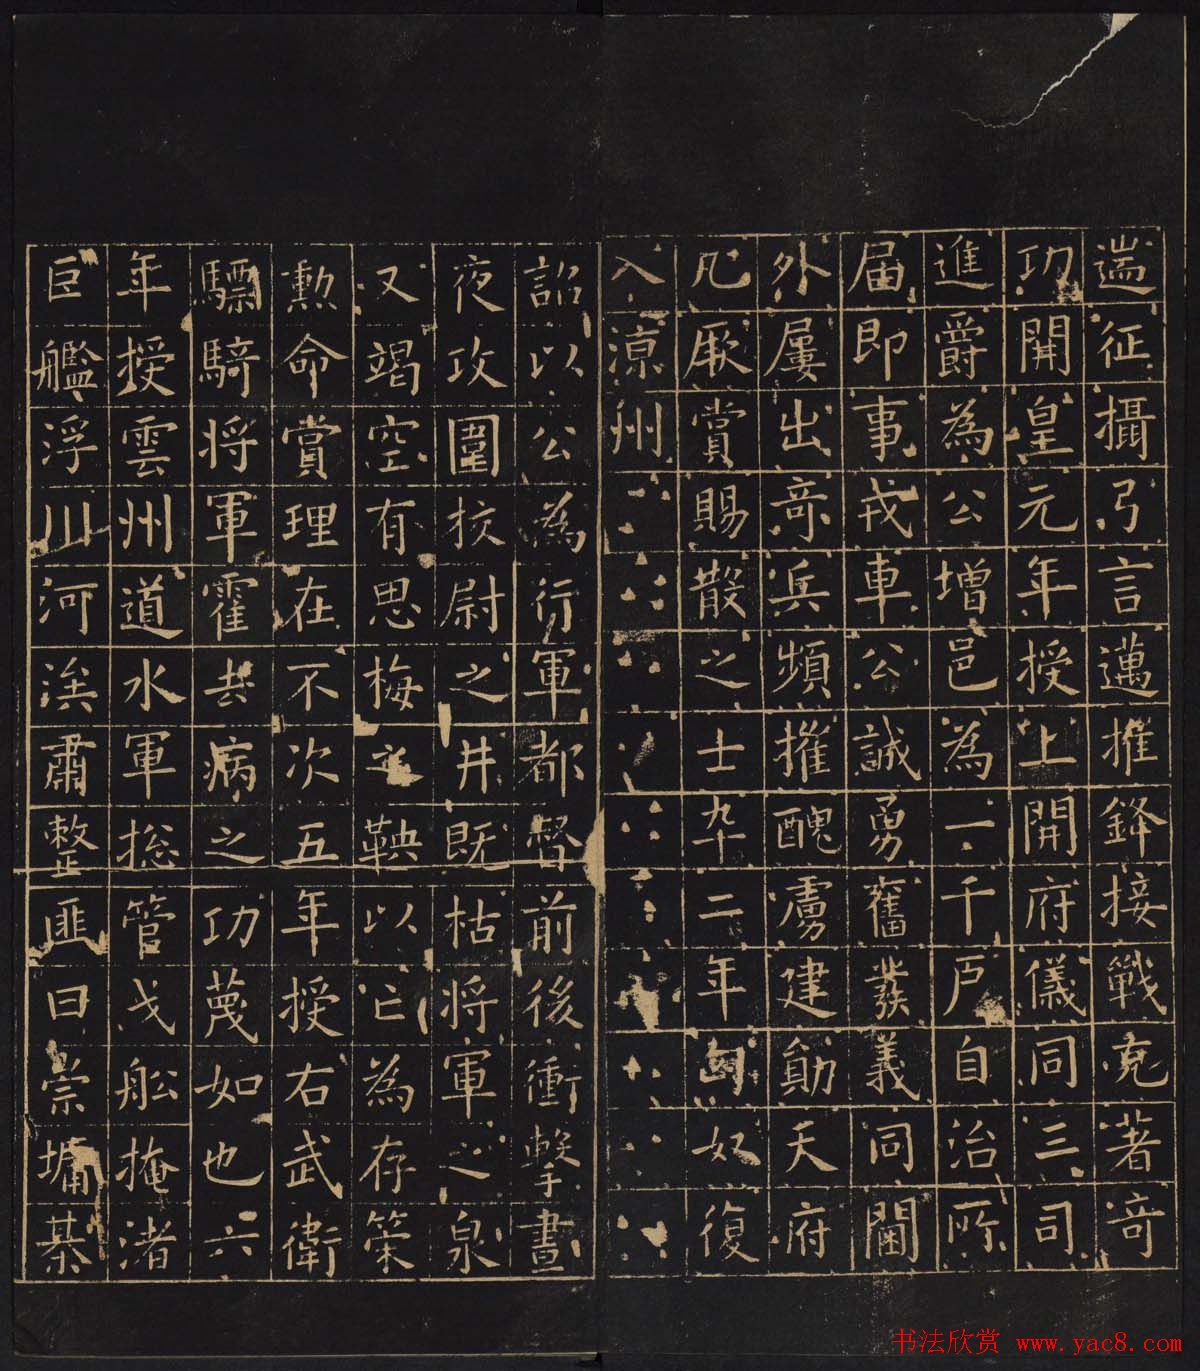 遄征攝弓言邁推鋒接戰克著奇
功開皇元年授上開府儀同三司
進爵為公增邑為一千戶自治所
届即事戎車公誠勇奮發義同閫
外屢出奇兵頻摧醜虜建勛天府
凡厥賞賜散之士卒二年匈奴復
入涼州
詔以公為行軍都督前後衝擊晝
夜攻圍校尉之井既枯將軍之泉
又竭空有思梅之鞅以亡為存策
勲命賞理在不次五年授右武衛
驃騎將軍霍去病之功蔑如也六
年授雲州道水軍総管戈船掩渚
巨艦浮川河涘肅整匪曰崇墉綦
书法欣赏 www.yac8.com